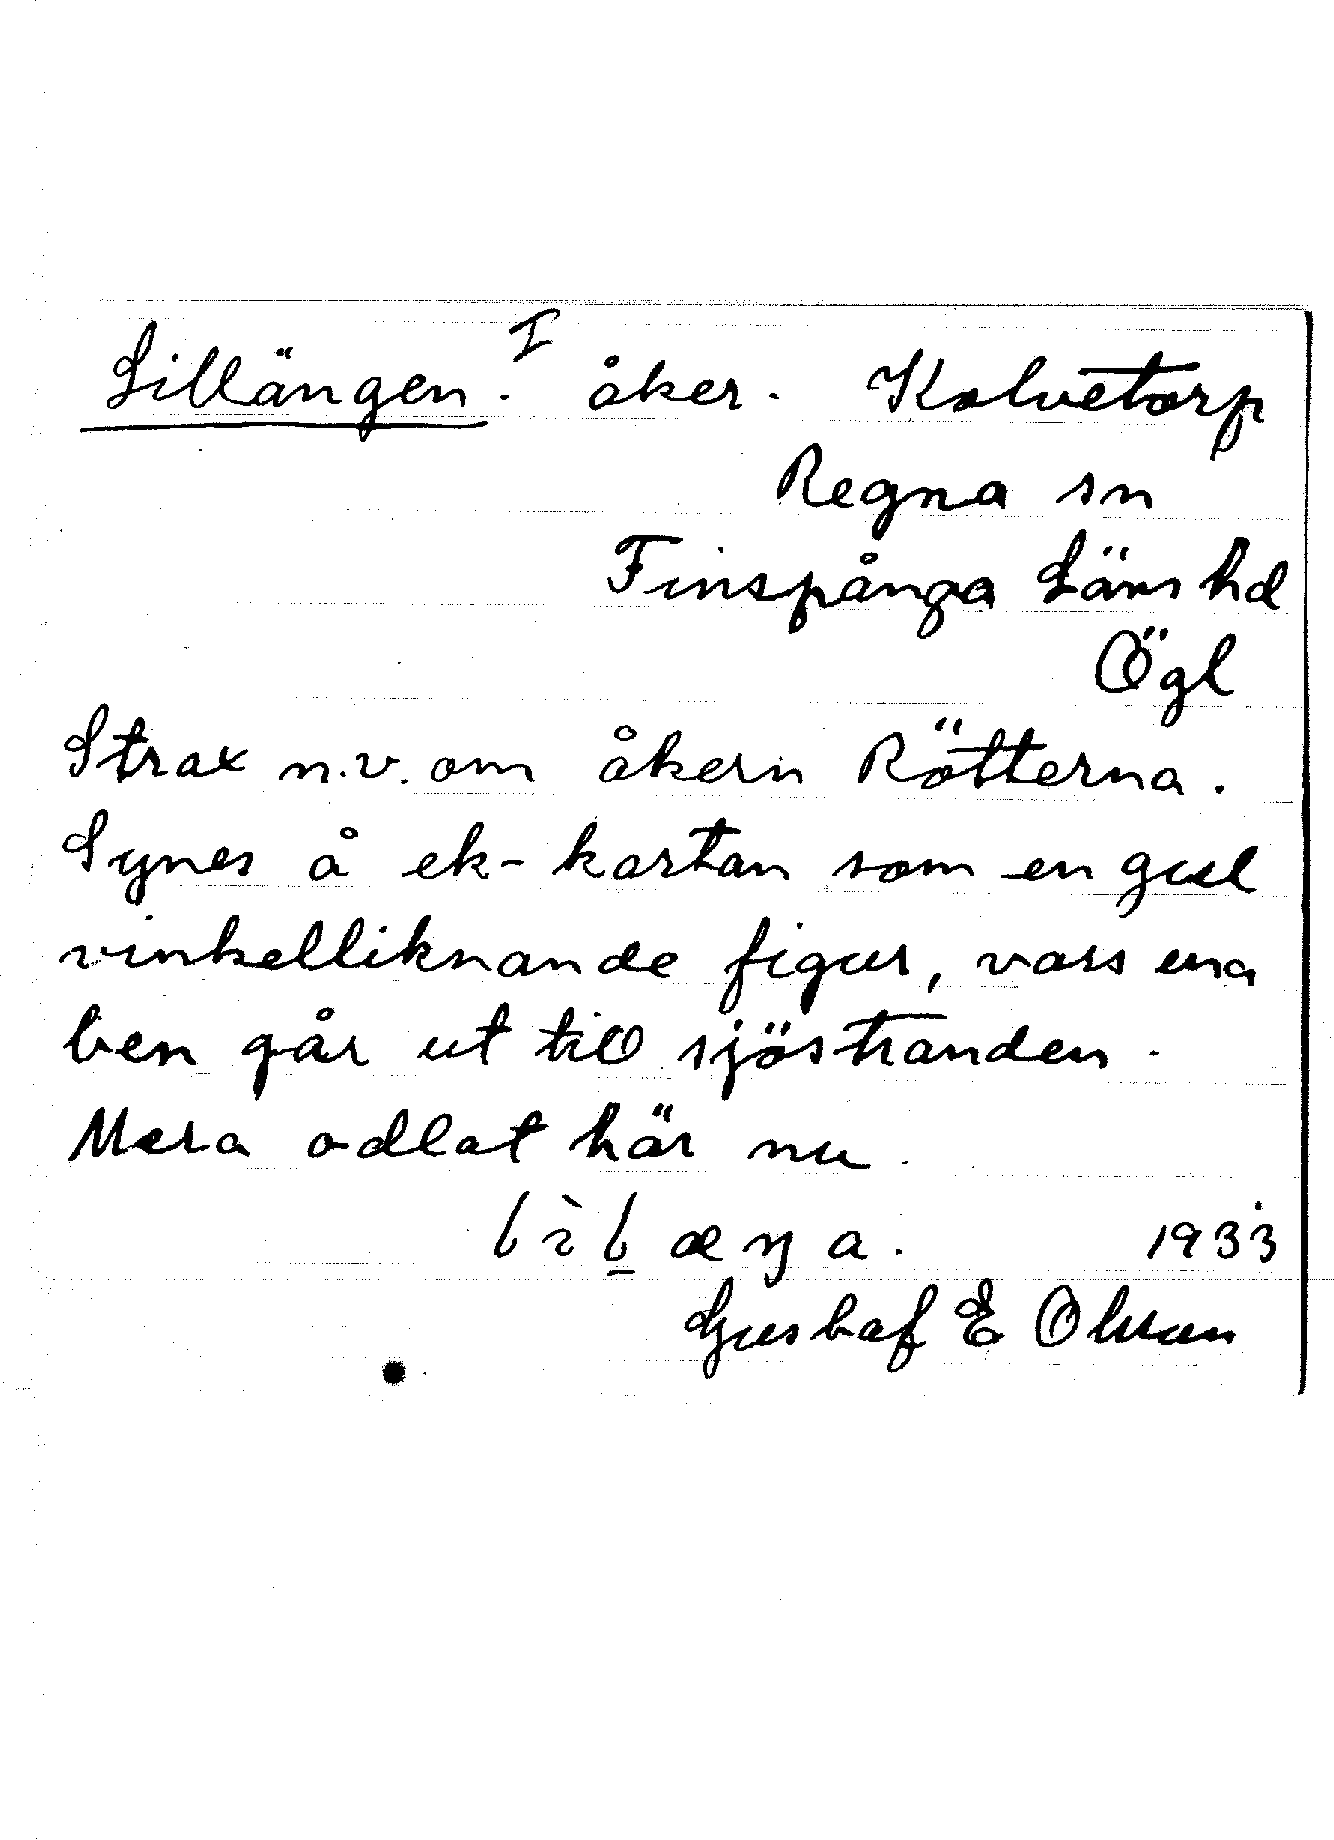 Lillängen. I åker. Kolvetorp
Regna sn
Finspånga Läns hd
Ögl
Strax n.v. om åkern Rötterna.
Synes å ek-kartan som en gul
vinkelliknande figur, vars ena
ben går ut till sjöstranden.
Mera odlat här nu.
1933
Gustaf E Olsson